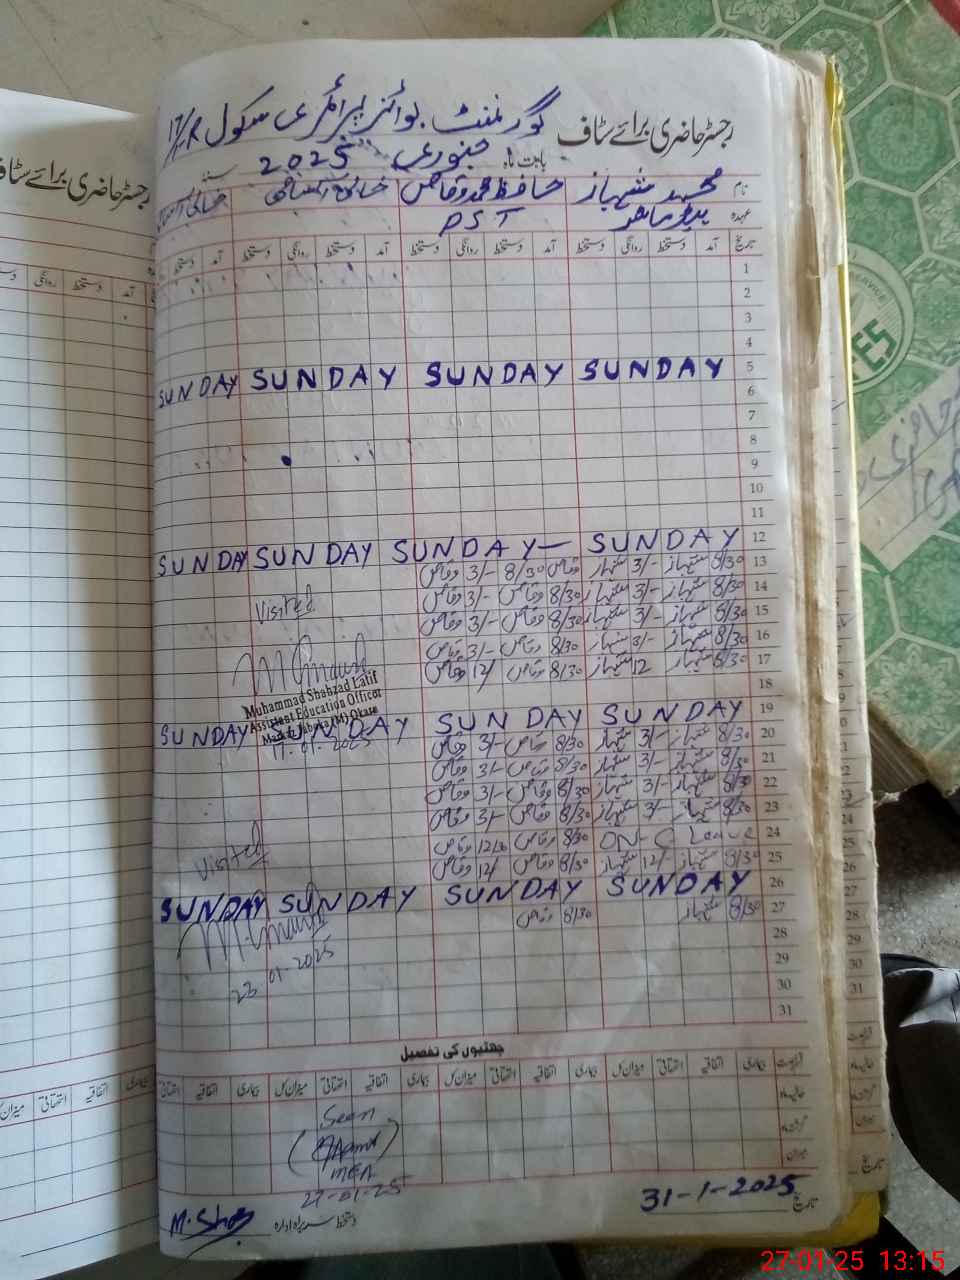 رجسٹر حاضری برائے سٹاف گورنمنٹ بوائز پرائمری سکول 17/1.R
بابت ماہ جنوری 2025 سنہ
نام محمد شہباز حافظ محمد وقاص خالی اسامی خالی اسامی
عہدہ ہیڈ ماسٹر PST
تاریخ آمد دستخط روانگی دستخط آمد دستخط روانگی دستخط آمد دستخط روانگی دستخط آمد دستخط
1
2
3
4
5 SUNDAY SUNDAY SUNDAY SUNDAY
6
7
8
9
10
11
12 SUNDAY SUNDAY — SUNDAY SUNDAY
13 8/30 شہباز 3/- شہباز 8/30 وقاص 3/- وقاص
14 8/30 شہباز 3/- شہباز 8/30 وقاص 3/- وقاص
Visited
15 8/30 شہباز 3/- شہباز 8/30 وقاص 3/- وقاص
16 8/30 شہباز 3/- شہباز 8/30 وقاص 3/- وقاص
17 8/30 شہباز 12 شہباز 8/30 وقاص 12/ وقاص
18
Muhammad Shahzad Latif
Assistent Education Officer
19 SUNDAY SUNDAY SUNDAY SUNDAY
17-01-2025
20 8/30 شہباز 3/- شہباز 8/30 وقاص 3/- وقاص
21 8/30 شہباز 3/- شہباز 8/30 وقاص 3/- وقاص
22 8/30 شہباز 3/- شہباز 8/30 وقاص 3/- وقاص
23 8/30 شہباز 3/- شہباز 8/30 وقاص 3/- وقاص
24 ON- C Leave 8/30 وقاص 12/30 وقاص
Visited
25 8/30 شہباز 12/- شہباز 8/30 وقاص 12/ وقاص
26 SUNDAY SUNDAY SUNDAY SUNDAY
27 8/30 شہباز 8/30 وقاص
28
29
23-01-2025
30
31
چھٹیوں کی تفصیل
بیماری اتفاقیہ استحقاق میزان کل بیماری اتفاقیہ استحقاق میزان کل بیماری اتفاقیہ استحقاق میزان کل بیماری اتفاقیہ استحقاق
Seen
MEA
27-01-25
تاریخ 31-1-2025
دستخط سربراہ ادارہ
رجسٹر حاضری برائے سٹاف
27-01-25 13:15